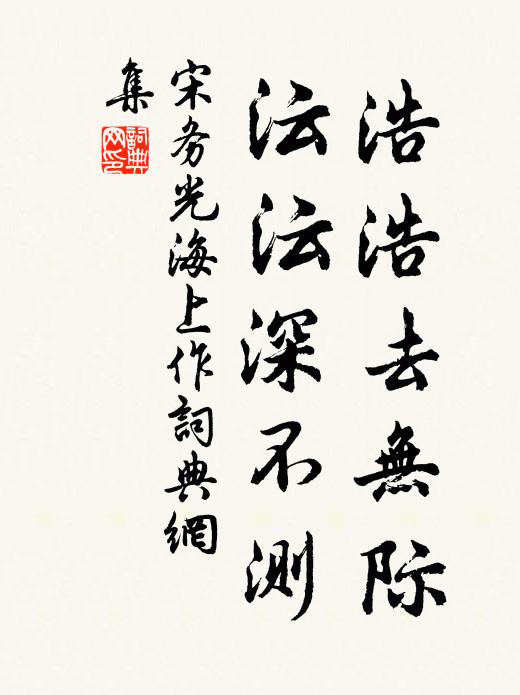 浩浩去無际
沄沄深不測
宋务光海上作詞典網
集
詞典网印